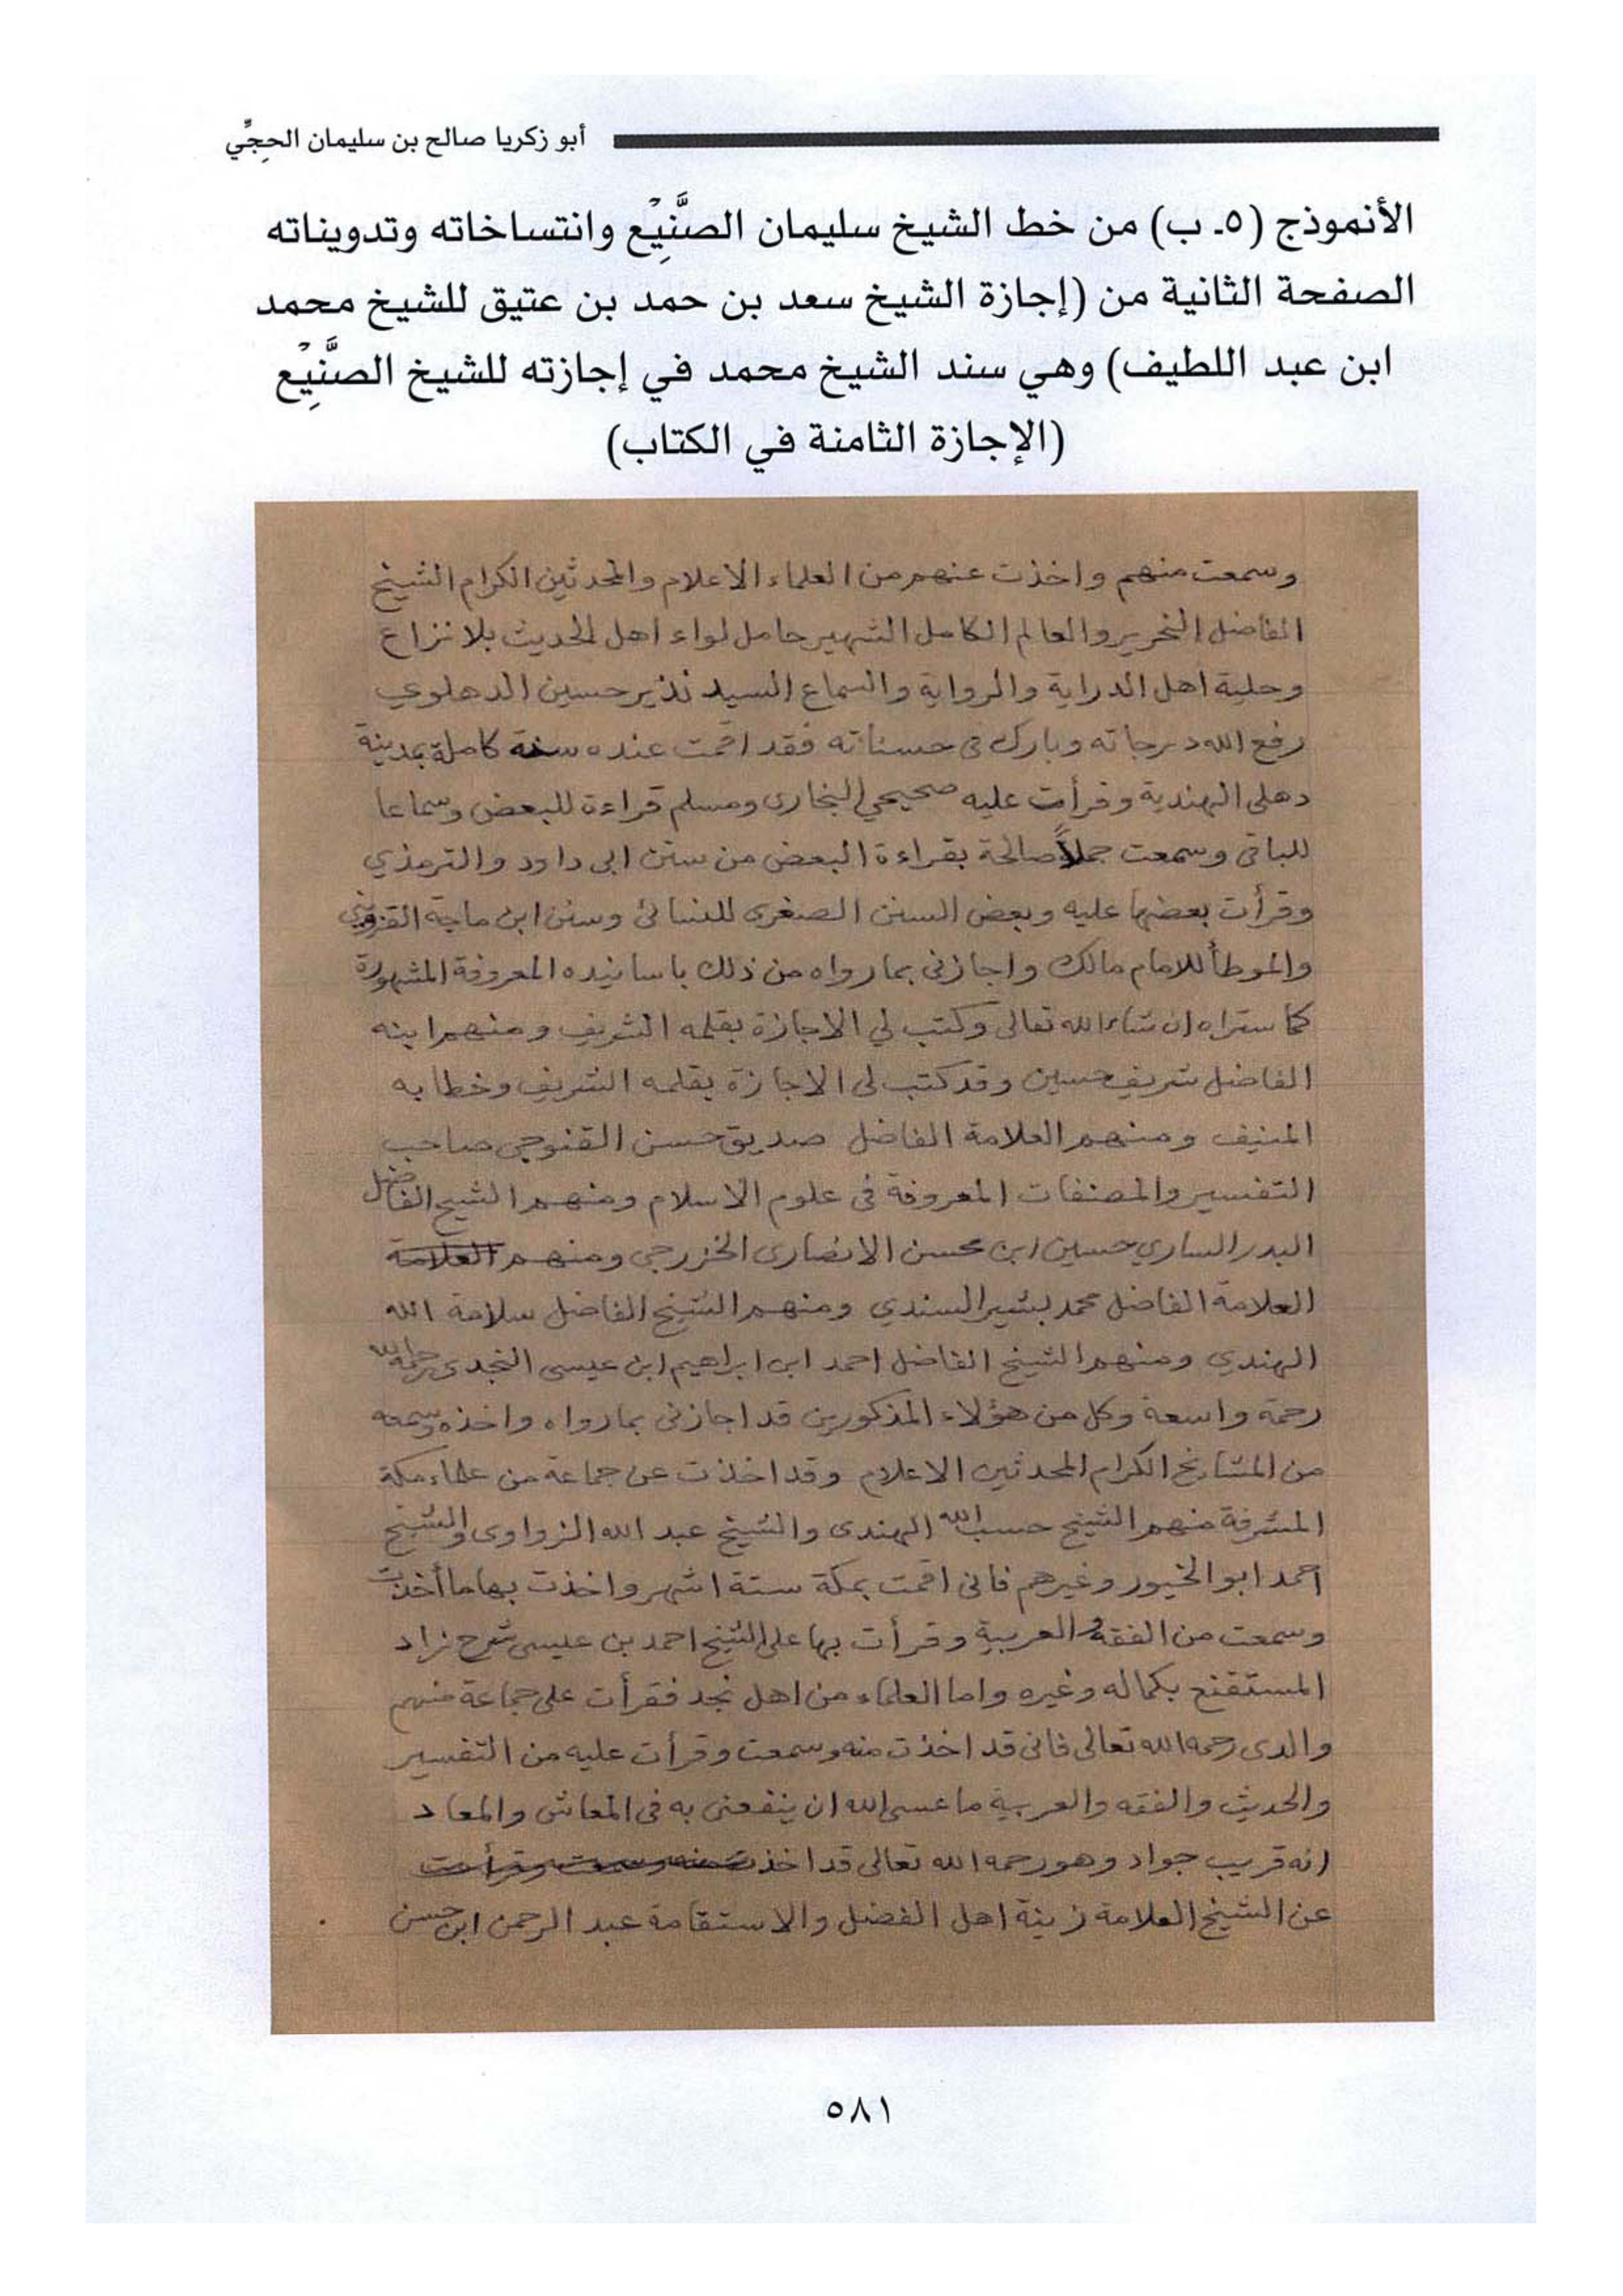 أبو زكريا صالح بن سليمان الحجِّي
الأنموذج (٥ـ ب) من خط الشيخ سليمان الصَّنِيْع وانتساخاته وتدويناته
الصفحة الثانية من (إجازة الشيخ سعد بن حمد بن عتيق للشيخ محمد
ابن عبد اللطيف) وهي سند الشيخ محمد في إجازته للشيخ الصَّنِيْع
(الإجازة الثامنة في الكتاب)
وسمعت منهم واخذت عنهم من العلماء الاعلام والمحدثين الكرام الشيخ
الفاضل النحرير والعالم الكامل الشهير حامل لواء اهل الحديث بلا نزاع
وحلية اهل الدراية والرواية والسماع السيد نذير حسين الدهلوي
رفع الله درجاته وبارك فى حسناته فقد اقمت عنده سنة كاملة بمدينة
دهلى الهندية وقرأت عليه صحيحي البخارى ومسلم قراءة للبعض وسماعا
للباقى وسمعت جملاً صالحة بقراءة البعض من سنن ابى داود والترمذي
وقرأت بعضها عليه وبعض السنن الصغرى للنسائى وسنن ابن ماجة القزوينى
والموطأ للامام مالك واجازنى بما رواه من ذلك باسانيده المعروفة المشهورة
كما ستراه ان شاء الله تعالى وكتب لي الاجازة بقلمه الشريف ومنهم ابنه
الفاضل شريف حسين وقد كتب لى الاجازة بقلمه الشريف وخطابه
المنيف ومنهم العلامة الفاضل صديق حسن القنوجى صاحب
التفسير والمصنفات المعروفة فى علوم الاسلام ومنهم الشيخ الفاضل
البدر الساري حسين ابن محسن الانصارى الخزرجى ومنهم العلامة
العلامة الفاضل محمد بشير السندي ومنهم الشيخ الفاضل سلامة الله
الهندي ومنهم الشيخ الفاضل احمد ابن ابراهيم ابن عيسى النجدى رحمه الله
رحمة واسعة وكل من هؤلاء المذكورين قد اجازنى بما رواه واخذه وسمعه
من المشايخ الكرام المحدثين الاعلام وقد اخذت عن جماعة من علماء مكة
المشرفة منهم الشيخ حسب الله الهندى والشيخ عبد الله الزواوى والشيخ
احمد ابو الخيور وغيرهم فانى اقمت بمكة ستة اشهر واخذت بها ما أخذت
وسمعت من الفقه والعربية وقرأت بها على الشيخ احمد بن عيسى شرح زاد
المستقنع بكماله وغيره واما العلماء من اهل نجد فقرأت على جماعة منهم
والدى رحمه الله تعالى فانى قد اخذت منه وسمعت وقرأت عليه من التفسير
والحديث والفقه والعربية ما عسى الله ان ينفعنى به فى المعاش والمعاد
انه قريب جواد وهو رحمه الله تعالى قد اخذ منه وسمعت وقرأت
عن الشيخ العلامة زينة اهل الفضل والاستقامة عبد الرحمن ابن حسن
٥٨١